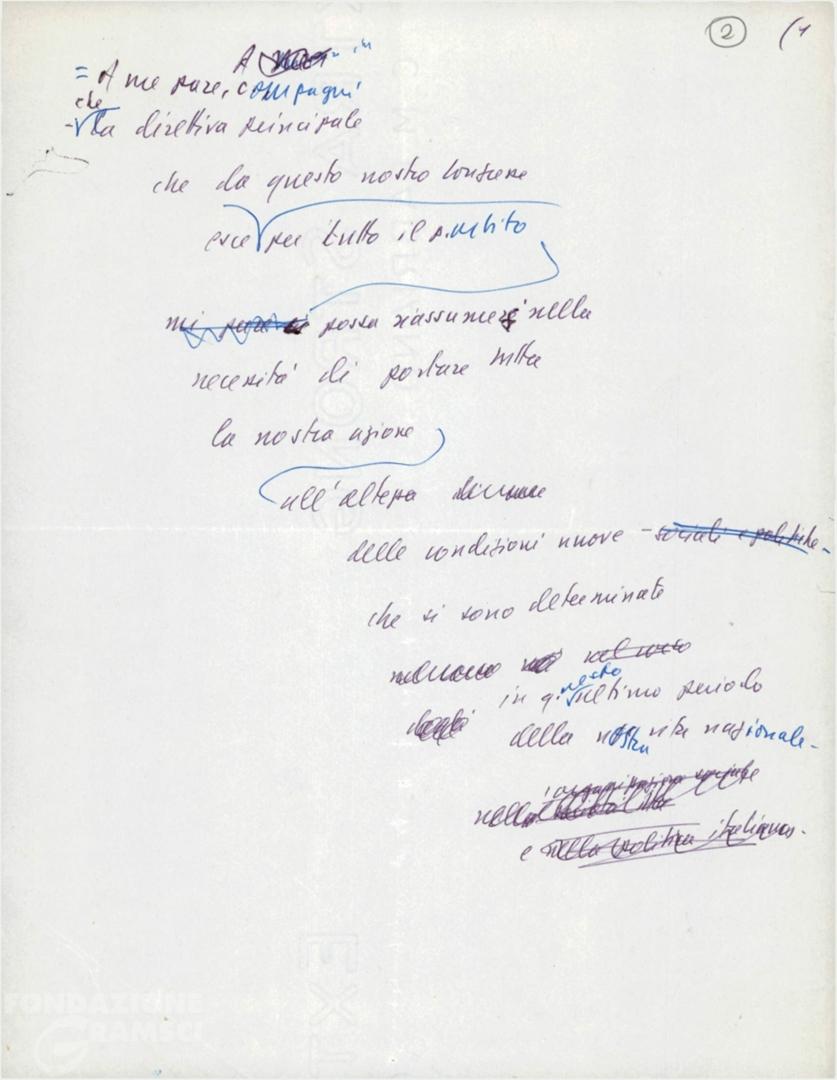 2 (1
= A me pare, compagni
che
- la direttiva principale
che da questo nostro Congresso
esce per tutto il partito
mi pare si possa riassumere nella
necessità di portare tutta
la nostra azione
all'altezza
delle condizioni nuove - sociali e politiche -
che si sono determinate
in questo ultimo periodo
della nostra vita nazionale -
nella
l'organizzazione sociale
e nella politica italiana -
FONDAZIONE
GRAMSCI